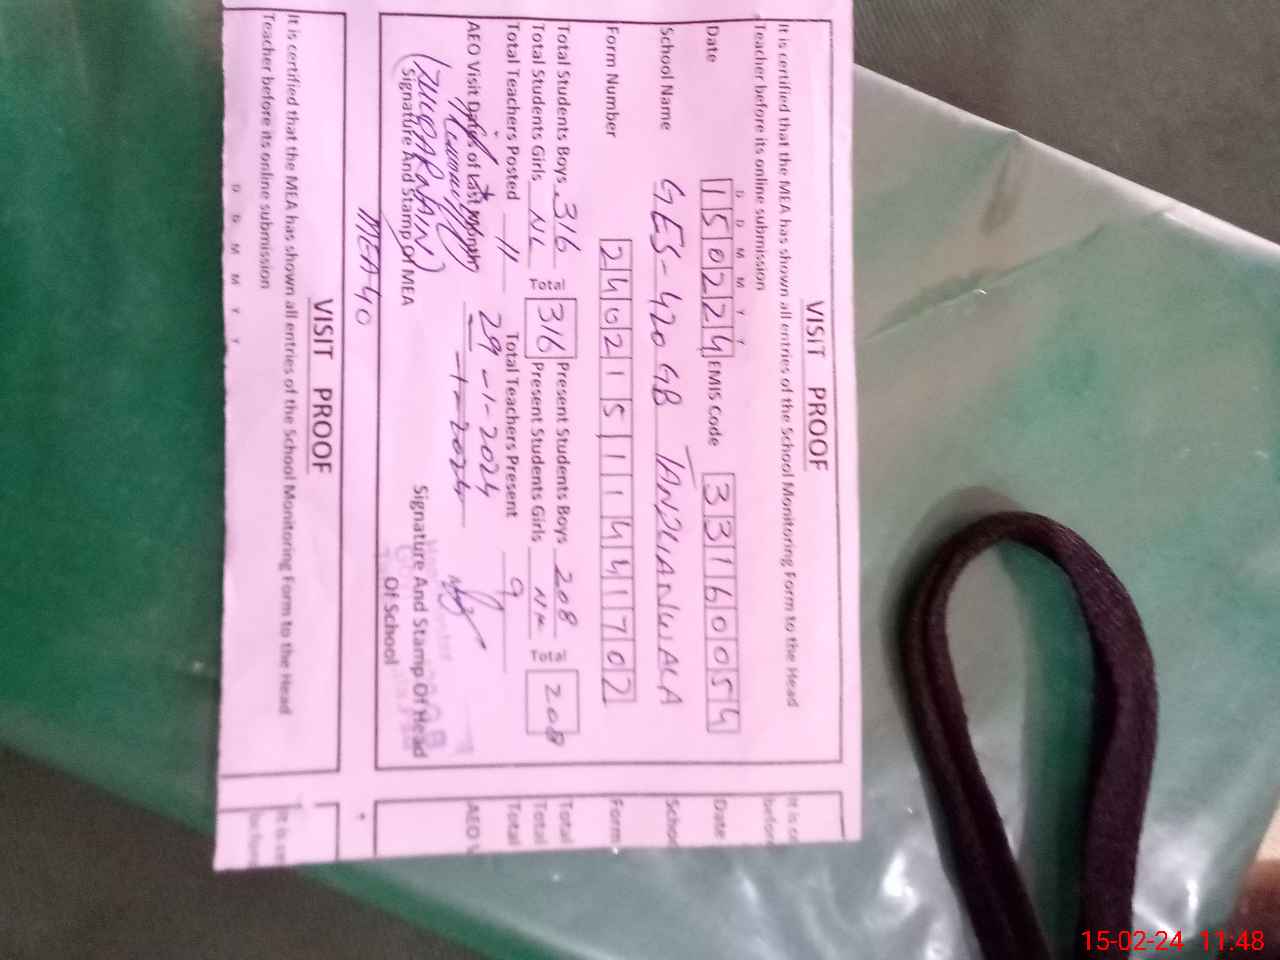 VISIT PROOF
It is certified that the MEA has shown all entries of the School Monitoring Form to the Head
Teacher before its online submission
D D M M Y Y
Date 150224 EMIS Code 33160054
School Name GES-420 GB TANDLIANWALA
Form Number 240215111441702
Total Students Boys 316 Total 316 Present Students Boys 208 Total 208
Total Students Girls NL Present Students Girls
Total Teachers Posted 11 Total Teachers Present 9
AEO Visit Dates of Last Month 29-1-2024
-1-2024
Signature And Stamp Of MEA
Signature And Stamp Of Head
Of School
MEA 40
VISIT PROOF
It is certified that the MEA has shown all entries of the School Monitoring Form to the Head
Teacher before its online submission
D D M M Y Y
It is ce
before
Date
Schoo
Form
Total
Total
Total
AEO V
It is ce
15-02-24 11:48